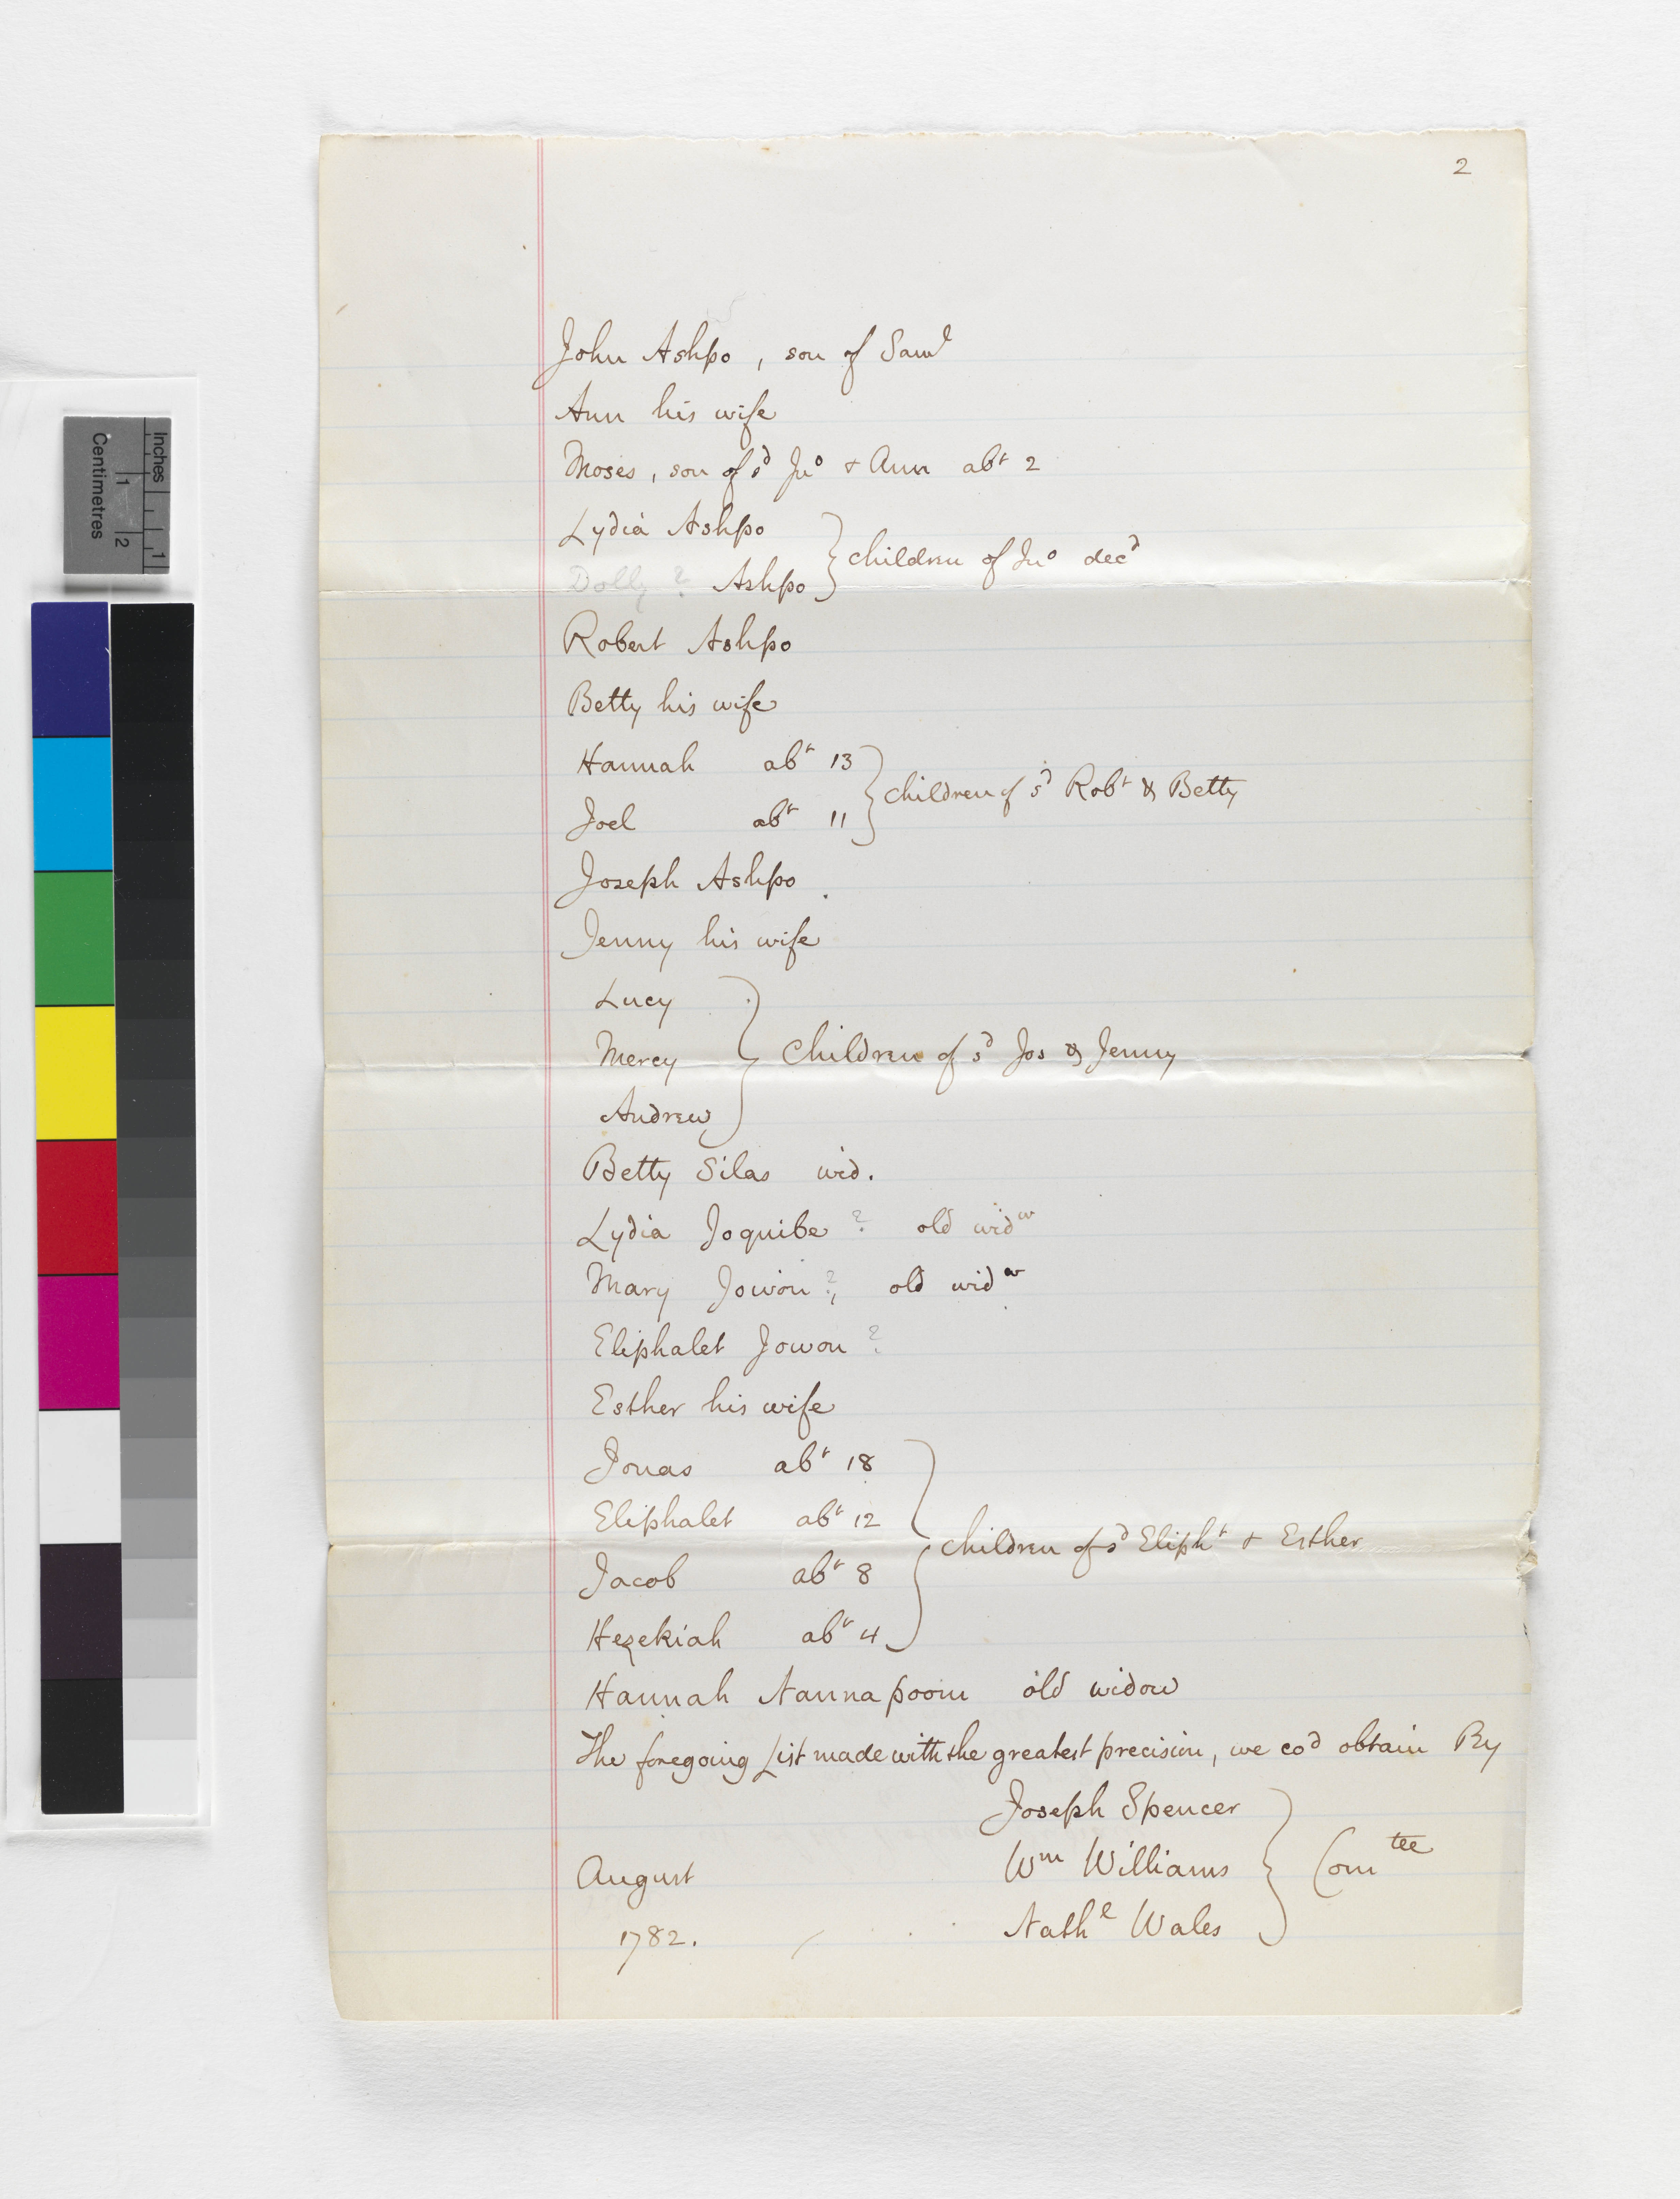 2
John Ashpo, son of Saml
Ann his wife
Moses, son of sd Jno + Ann abt 2
Lydia Ashpo
children of Jno decd
Dolly? Ashpo
Robert Ashpo
Betty his wife
Hannah abt 13
children of sd Robt & Betty
Joel abt 11
Joseph Ashpo
Jenny his wife
Lucy
Mercy children of sd Jos & Jenny
Andrew
Betty Silas wid.
Lydia Joquibe ? old widw
Mary Jowon ?, old widw
Eliphalet Jowon ?
Esther his wife
Jonas abt 18
Eliphalet abt 12
children of sd Elipht + Esther
Jacob abt 8
Hezekiah abt 4
Hannah Nannapoom old widow
The foregoing List made with the greatest precision, we cod obtain By
Joseph Spencer
August Wm Williams Comtee
1782. Nathl Wales
Inches
1
Centimetres
1 2